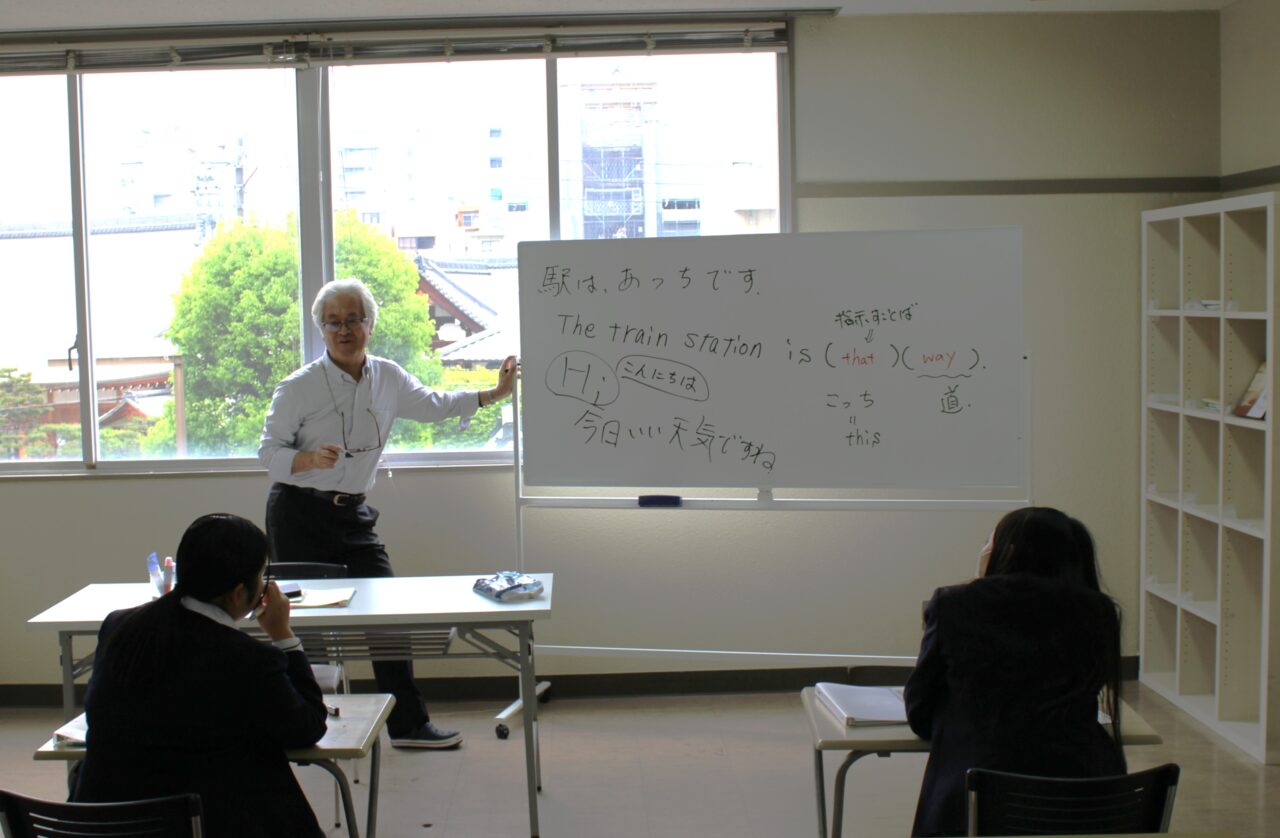 駅は、あっちです.
指示すことば
The train station is (that)(way).
Hi こんにちは
こっち 道.
this
今日いい天気ですね